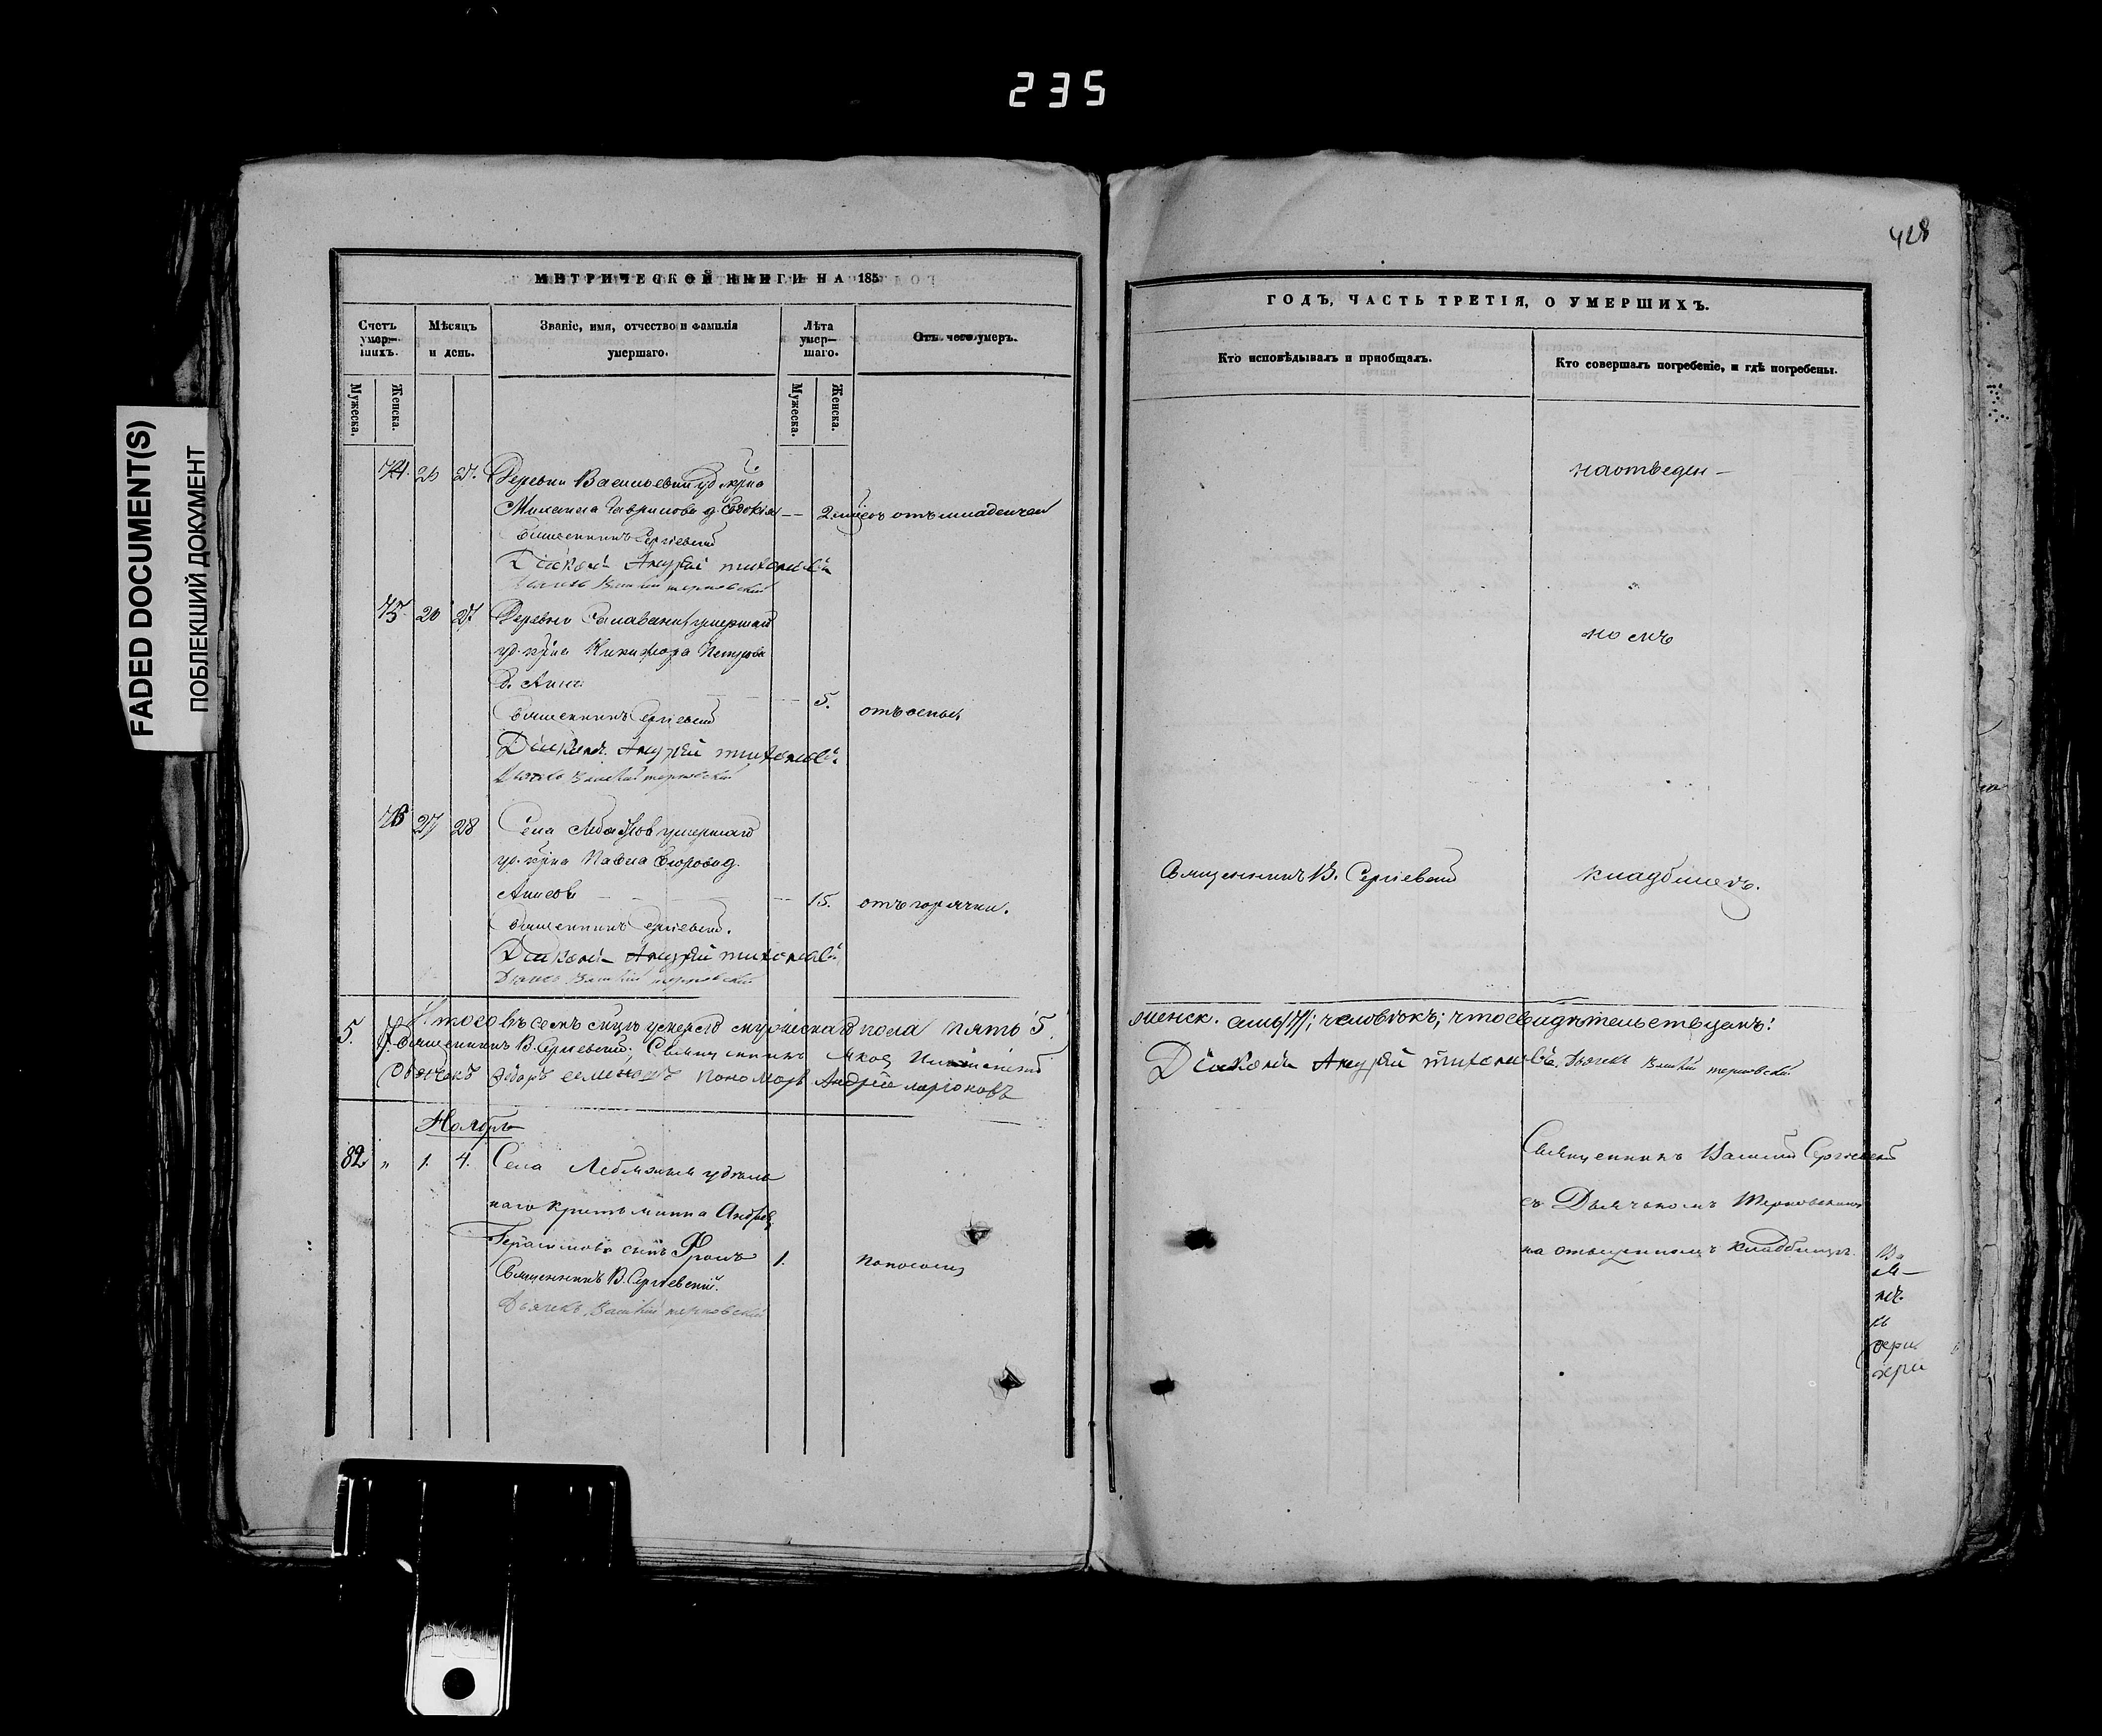 235
FADED DOCUMENT(S)
ПОБЛЕКШИЙ ДОКУМЕНТ
МЕТРИЧЕСКОЙ КНИГИ НА 185
Счетъ умер— шихъ.
Мѣсяцъ и день.
Званіе, имя, отчество и фамилія умершаго.
Лѣта умер— шаго.
Отъ чего умеръ.
Мужеска.
Женска.
Мужеска.
Женска.
74. 26 27. Деревни Васильевки уд. кр-на
Михаила Гаврилова д. Евдокія — 2 мѣсец отъ младенчес
Священникъ Сергіевскій
Діаконъ Андрей Тихоновъ
Дьячекъ Василій Терновскій
75. 26 27 Деревни умершаго
уд. кр-на Никифора Петрова
д. Анна 5.
Священникъ Сергіевскій отъ оспы
Діаконъ Андрей Тихоновъ
Дьячекъ Василій Терновскій
76 27 28 Села умершаго
уд. кр-на Павла д.
15. отъ горячки.
Священникъ Сергіевскій.
Діаконъ Андрей Тихоновъ
Дьячекъ Василій Терновскій
5. 7. Итого въ семъ м-цѣ умерло мужеска пола пять 5.
Священникъ В. Сергіевскій; Священникъ
Дьячекъ пономарь Андрей Ларіоновъ
Ноябрь
82 „ 1. 4. Села Лебяжья удѣль
наго крестьянина Андрея
Герасимова сынъ 1. Поносомъ
Священникъ В. Сергіевскій.
Дьячекъ Василій Терновскій
428
ГОДЪ, ЧАСТЬ ТРЕТІЯ, О УМЕРШИХЪ.
Кто исповѣдывалъ и пріобщалъ.
Кто совершалъ погребеніе, и гдѣ погребены.
на отведен—
номъ
Священникъ В. Сергіевскій кладбищѣ.
женск. семь /7/; человѣкъ; что свидѣтельствуемъ:
Діаконъ Андрей Тихоновъ. Дьячекъ Василій Терновскій
Священникъ Василій Сергіевскій
съ Дьячкомъ Терновскимъ
на отведенномъ кладбищѣ.